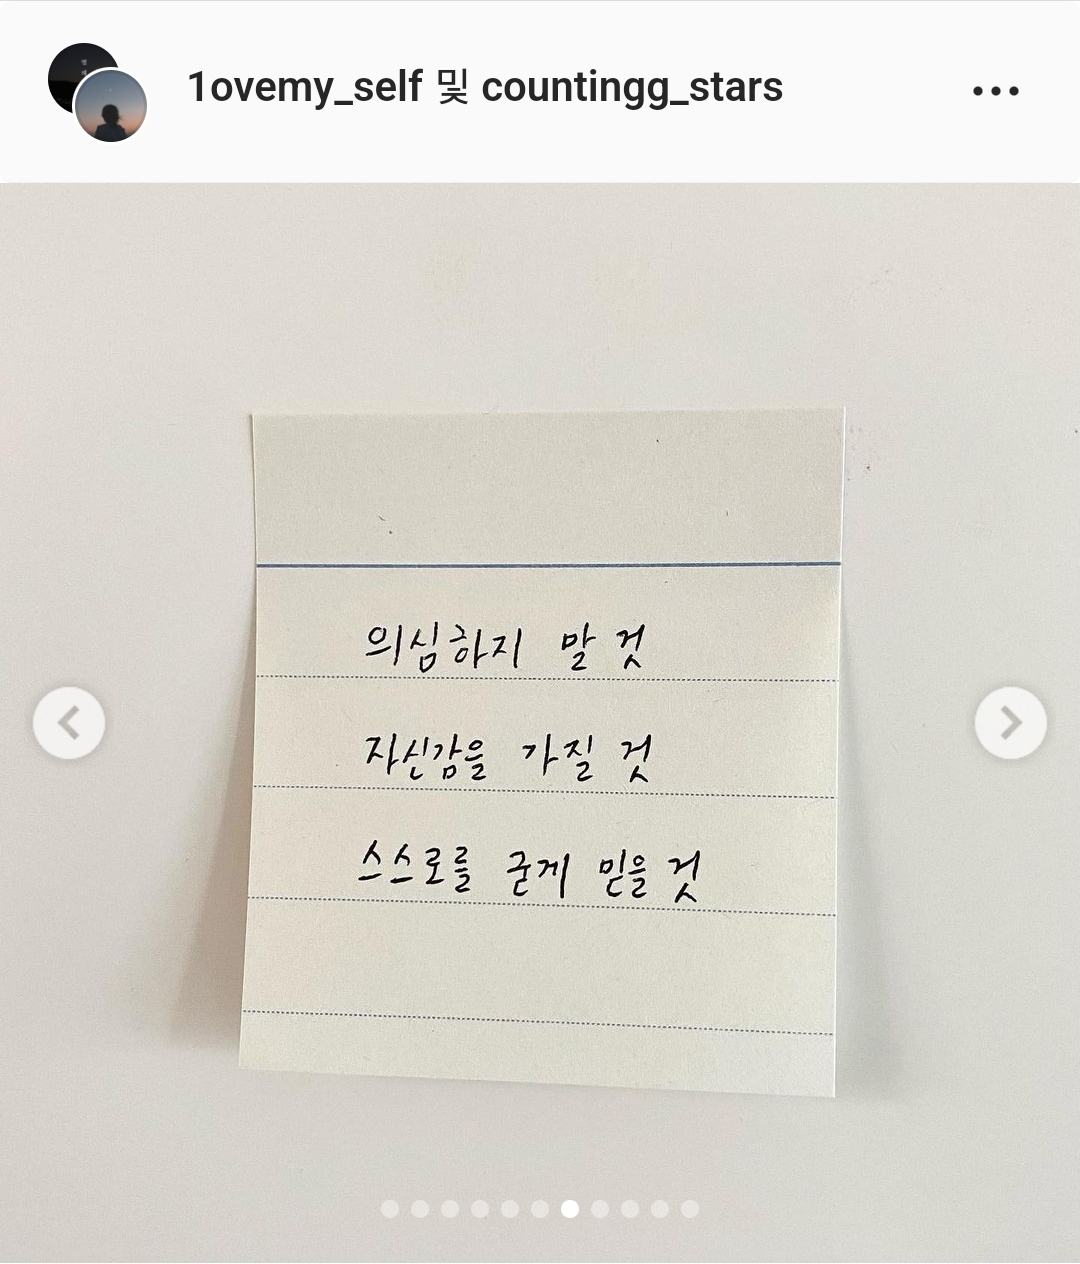 1ovemy_self 및 countingg_stars
의심하지 말 것
자신감을 가질 것
스스로를 굳게 믿을 것